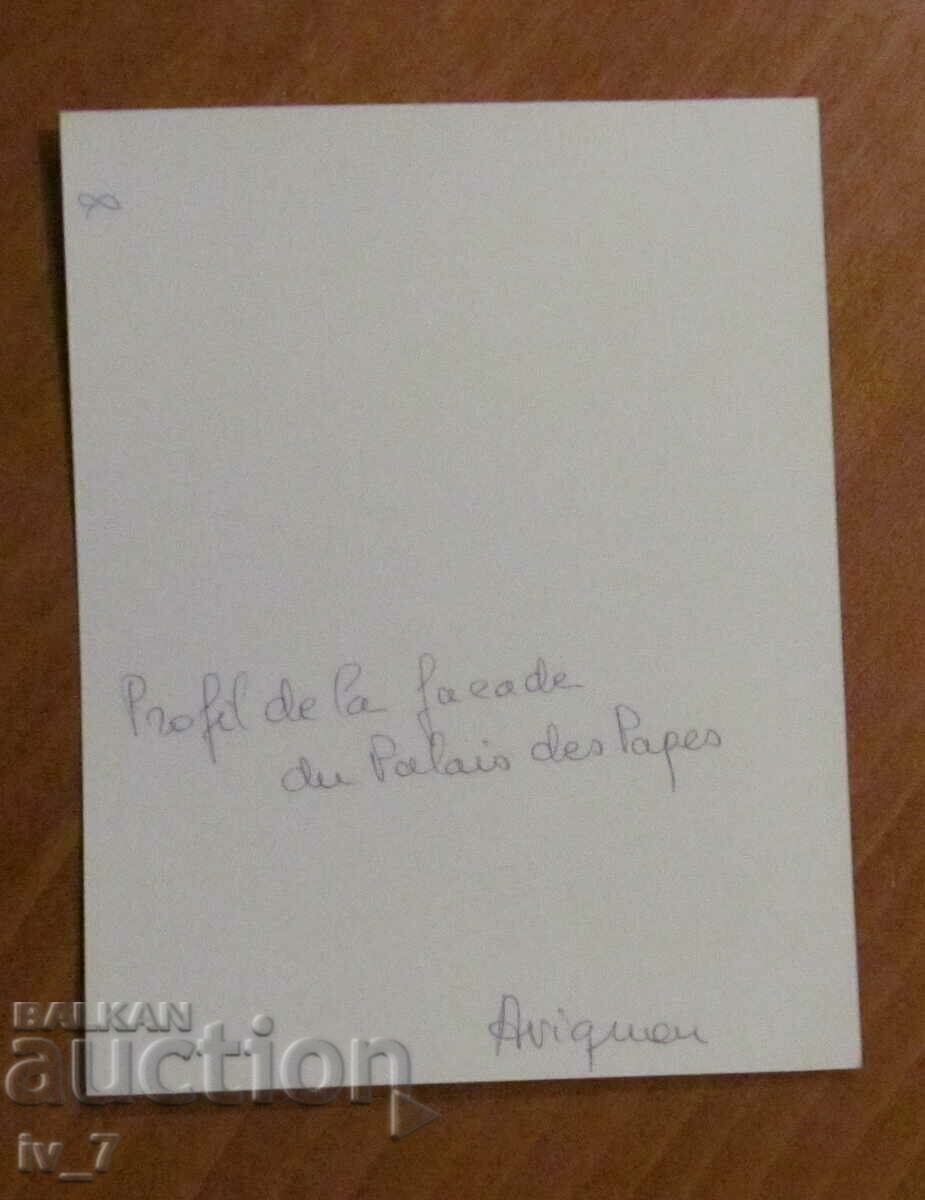 8
Profil de la facade
du Palais des Papes
Avignon
BALKAN
auction
iv_7